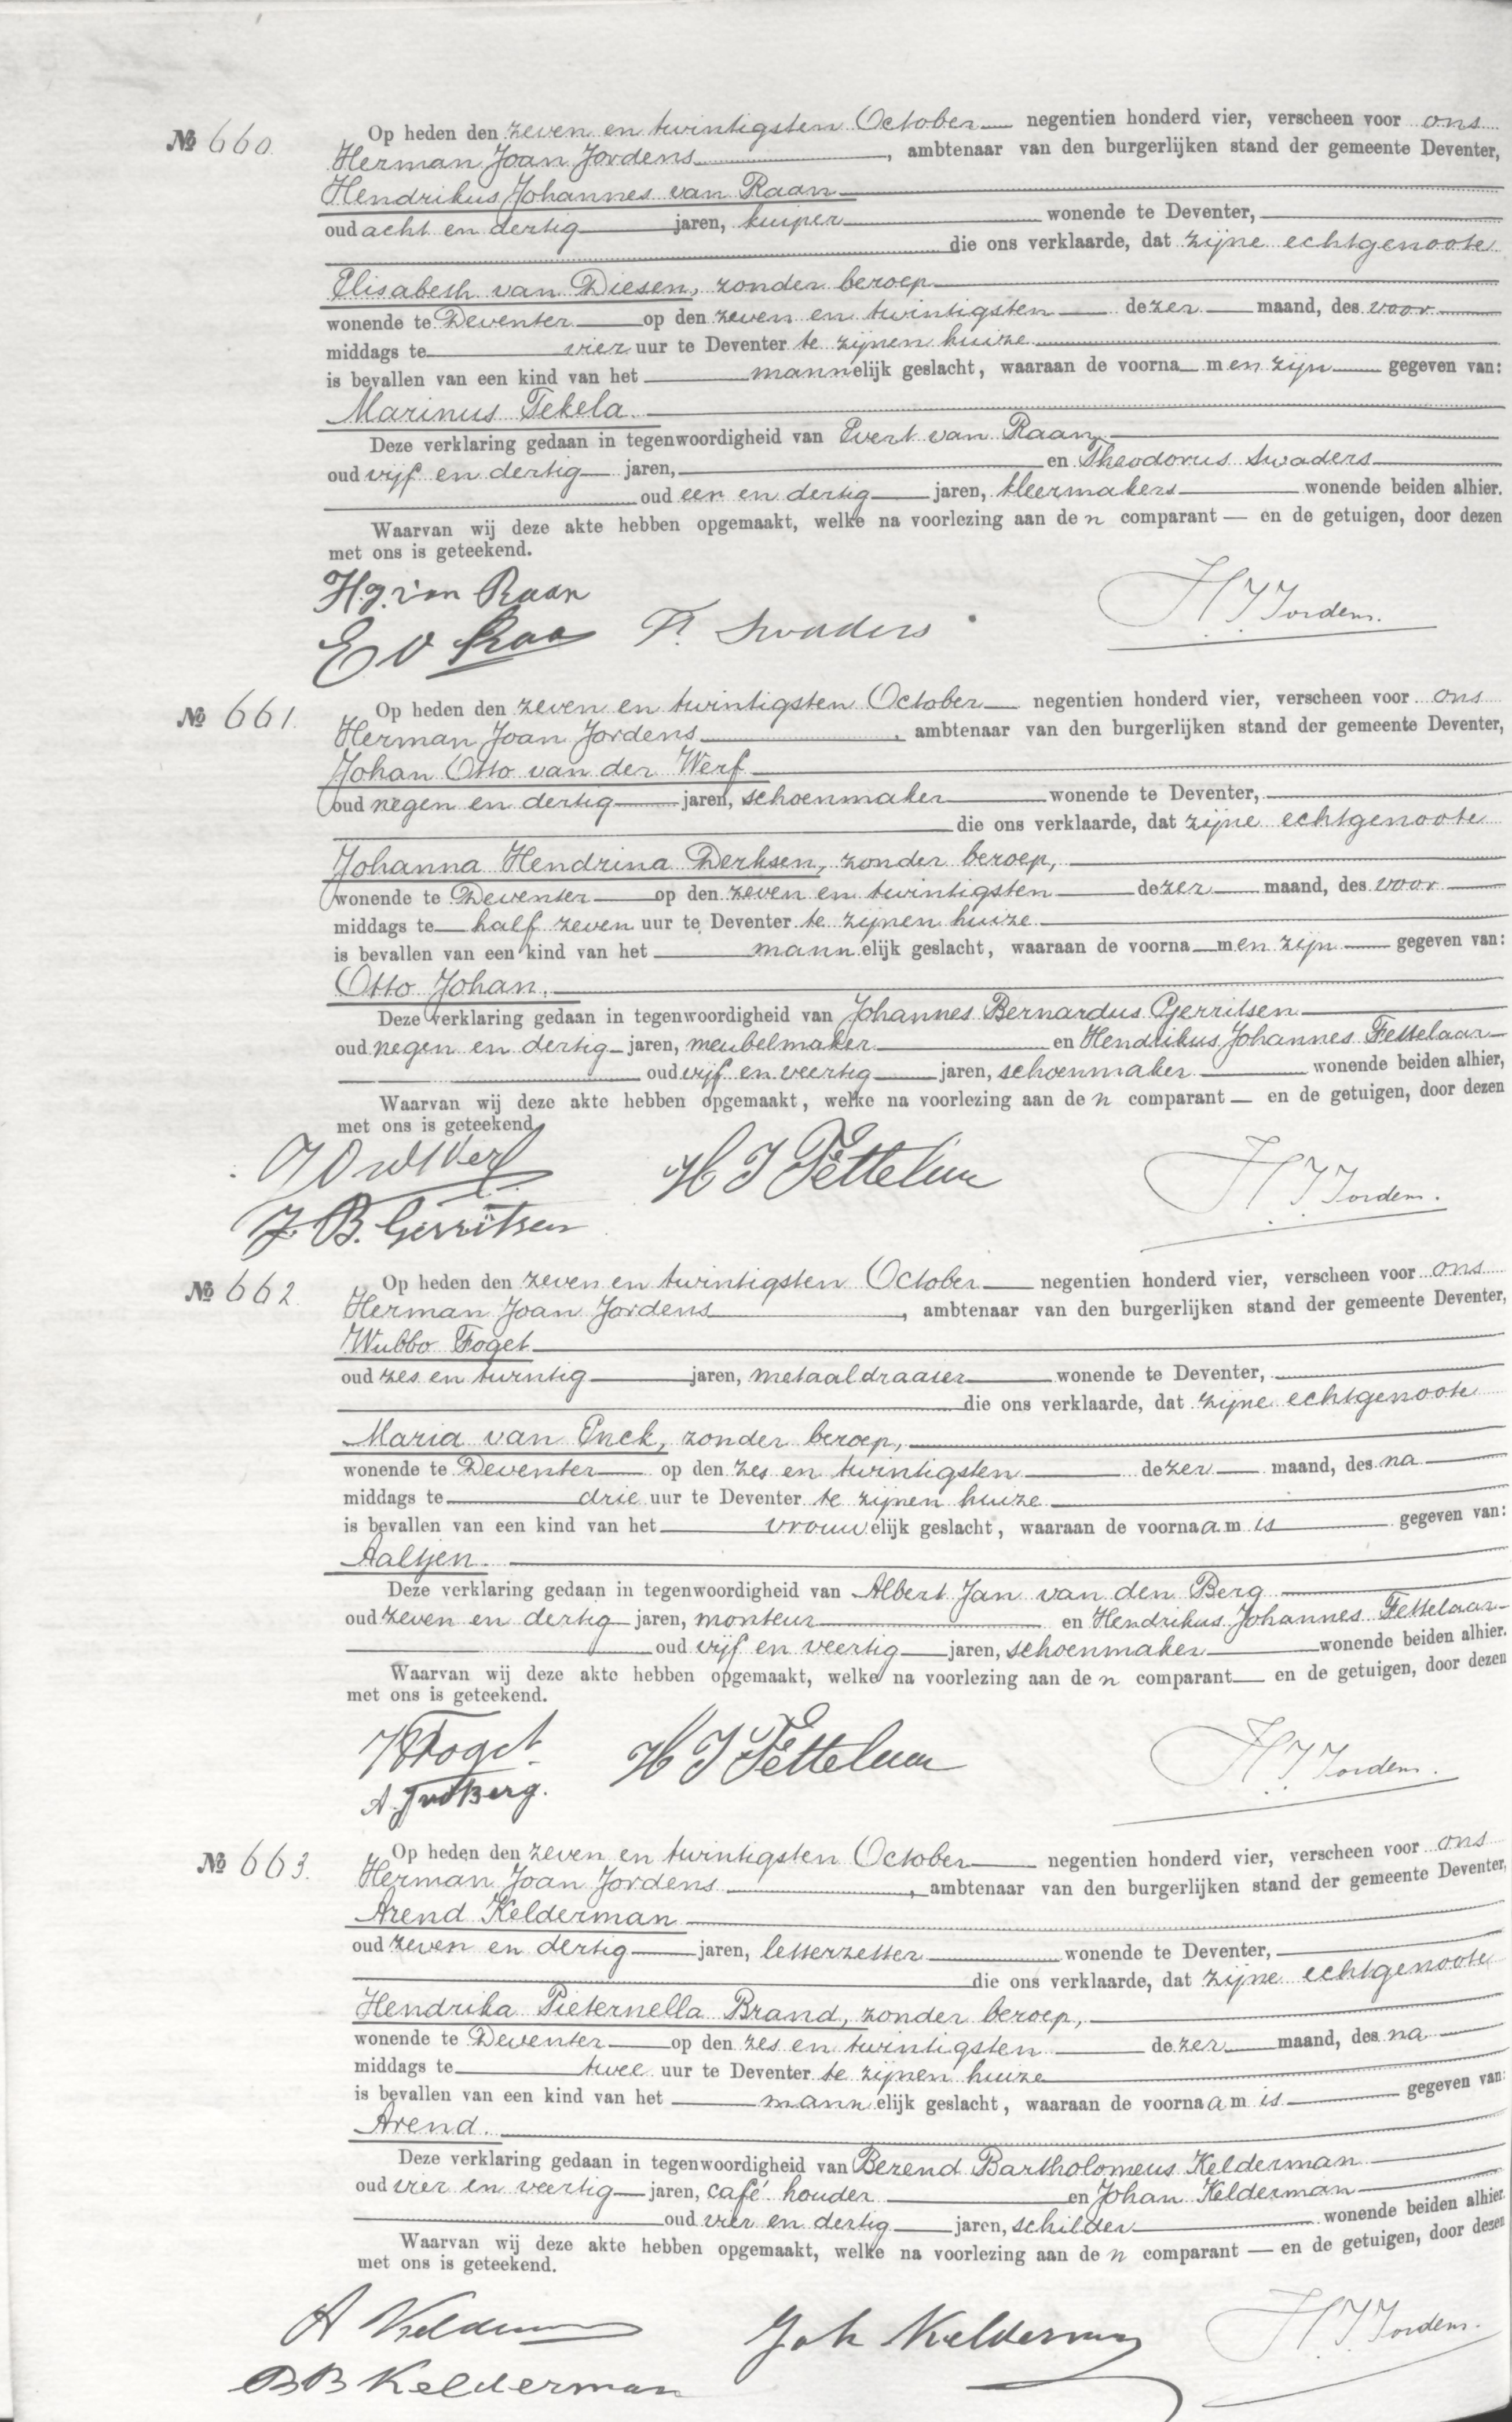 № 660. Op heden den zeven en twintigsten October negentien honderd vier, verscheen voor ons
Herman Joan Jordens, ambtenaar van den burgerlijken stand der gemeente Deventer,
Hendrikus Johannes van Raan
oud acht en dertig jaren, kuiper wonende te Deventer,
die ons verklaarde, dat zijne echtgenoote
Elisabeth van Diesen, zonder beroep
wonende te Deventer op den zeven en twintigsten dezer maand, des voor
middags te vier uur te Deventer te zijnen huize
is bevallen van een kind van het mannelijk geslacht, waaraan de voorna men zijn gegeven van:
Marinus Tekela.
Deze verklaring gedaan in tegenwoordigheid van Evert van Raan
oud vijf en dertig jaren, en Theodorus Swaders
oud een en dertig jaren, kleermakers wonende beiden alhier.
Waarvan wij deze akte hebben opgemaakt, welke na voorlezing aan den comparant — en de getuigen, door dezen
met ons is geteekend.
H.J. van Raan
E v Raa Th. Swaders H J Jordens.
№ 661. Op heden den zeven en twintigsten October negentien honderd vier, verscheen voor ons
Herman Joan Jordens, ambtenaar van den burgerlijken stand der gemeente Deventer,
Johan Otto van der Werf
oud negen en dertig jaren, schoenmaker wonende te Deventer,
die ons verklaarde, dat zijne echtgenoote
Johanna Hendrina Derksen, zonder beroep,
wonende te Deventer op den zeven en twintigsten dezer maand, des voor
middags te half zeven uur te Deventer te zijnen huize
is bevallen van een kind van het mannelijk geslacht, waaraan de voorna men zijn gegeven van:
Otto Johan.
Deze verklaring gedaan in tegenwoordigheid van Johannes Bernardus Gerritsen
oud negen en dertig jaren, meubelmaker en Hendrikus Johannes Fettelaar
oud vijf en veertig jaren, schoenmaker wonende beiden alhier,
Waarvan wij deze akte hebben opgemaakt, welke na voorlezing aan den comparant — en de getuigen, door dezen
met ons is geteekend
J O vd Werf H J Fettelaar H J Jordens.
J. B. Gerritsen
№ 662. Op heden den zeven en twintigsten October negentien honderd vier, verscheen voor ons
Herman Joan Jordens, ambtenaar van den burgerlijken stand der gemeente Deventer,
Wubbo Foget
oud zes en twintig jaren, metaaldraaier wonende te Deventer,
die ons verklaarde, dat zijne echtgenoote
Maria van Enck, zonder beroep,
wonende te Deventer op den zes en twintigsten dezer maand, des na
middags te drie uur te Deventer te zijnen huize
is bevallen van een kind van het vrouwelijk geslacht, waaraan de voornaam is gegeven van:
Aaltjen.
Deze verklaring gedaan in tegenwoordigheid van Albert Jan van den Berg
oud zeven en dertig jaren, monteur en Hendrikus Johannes Fettelaar
oud vijf en veertig jaren, schoenmaker wonende beiden alhier.
Waarvan wij deze akte hebben opgemaakt, welke na voorlezing aan den comparant — en de getuigen, door dezen
met ons is geteekend.
W Foget H J Fettelaar H J Jordens.
A. J vd Berg.
№ 663. Op heden den zeven en twintigsten October negentien honderd vier, verscheen voor ons
Herman Joan Jordens, ambtenaar van den burgerlijken stand der gemeente Deventer,
Arend Kelderman
oud zeven en dertig jaren, letterzetter wonende te Deventer,
die ons verklaarde, dat zijne echtgenoote
Hendrika Pieternella Brand, zonder beroep,
wonende te Deventer op den zes en twintigsten dezer maand, des na
middags te twee uur te Deventer te zijnen huize
is bevallen van een kind van het mannelijk geslacht, waaraan de voornaam is gegeven van:
Arend.
Deze verklaring gedaan in tegenwoordigheid van Berend Bartholomeus Kelderman
oud vier en veertig jaren, café houder en Johan Kelderman
oud vier en dertig jaren, schilder wonende beiden alhier.
Waarvan wij deze akte hebben opgemaakt, welke na voorlezing aan den comparant — en de getuigen, door dezen
met ons is geteekend.
A Kelderman Joh Kelderman H J Jordens.
B B Kelderman